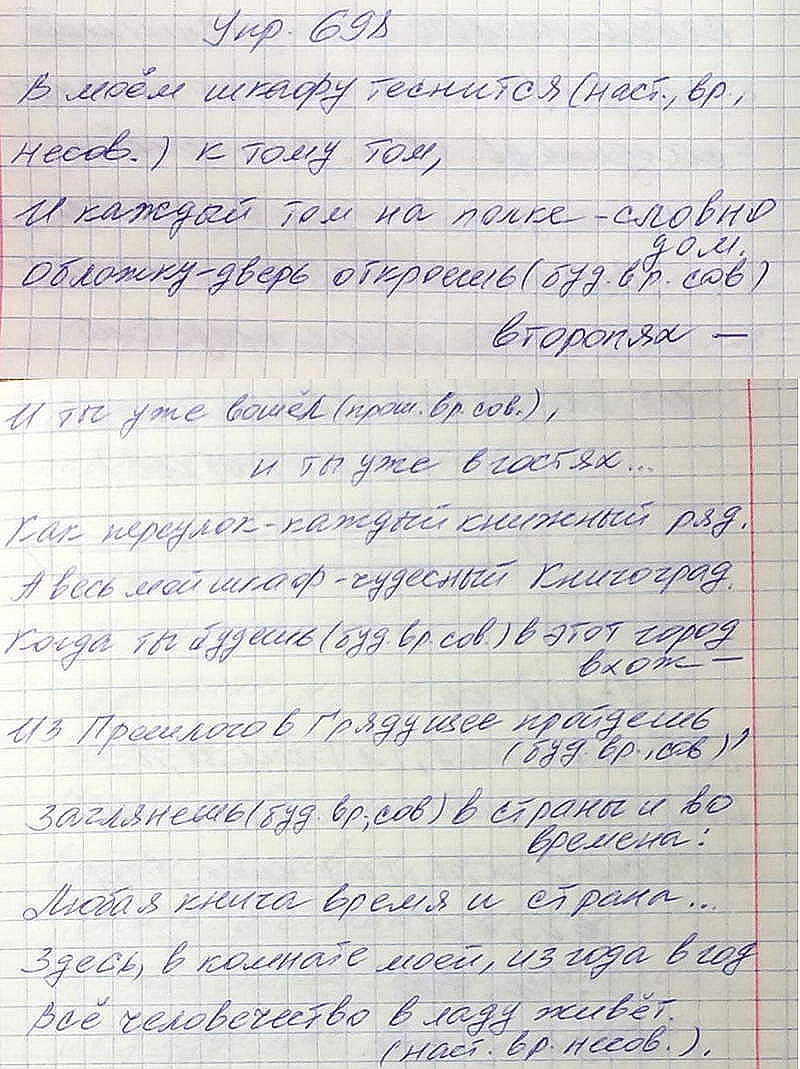 Упр. 698
В моём шкафу теснится (наст., вр.,
несов.) к тому том,
И каждый том на полке - словно
дом.
Обложку-дверь откроешь (буд. вр. сов)
второпях —
И ты уже вошёл (прош. вр. сов.),
и ты уже в гостях...
Как переулок - каждый книжный ряд.
А весь мой шкаф - чудесный Книгоград.
Когда ты будешь (буд. вр. сов.) в этот город
вхож —
Из Прошлого в Грядущее пройдешь
(буд. вр., сов),
Заглянешь (буд. вр., сов) в страны и во
времена:
Любая книга время и страна...
Здесь, в комнате моей, из года в год
Всё человечество в ладу живёт.
(наст. вр. несов.).